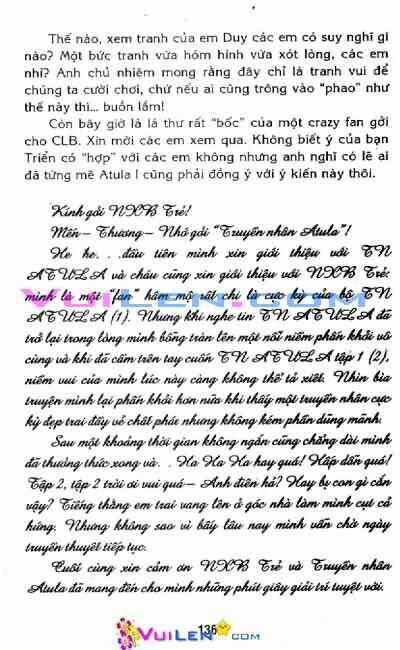 Thế nào, xem tranh của em Duy các em có suy nghĩ gì
nào? Một bức tranh vừa hóm hỉnh vừa xót lòng, các em
nhỉ? Anh chủ nhiệm mong rằng đây chỉ là tranh vui để
chúng ta cười chơi, chứ nếu ai cũng trông vào "phao" như
thế này thì... buồn lắm!
Còn bây giờ là lá thư rất "bốc" của một crazy fan gởi
cho CLB. Xin mời các em xem qua. Không biết ý của bạn
Triển có "hợp" với các em không nhưng anh nghĩ có lẽ ai
đã từng mê Atula I cũng phải đồng ý với ý kiến này thôi.
Kính gởi NXB Trẻ!
Mến - Thương - Nhớ gởi "Truyền nhân Atula"!
He he. . .đầu tiên mình xin giới thiệu với TN
ATULA và cháu cũng xin giới thiệu với NXB Trẻ:
mình là một "fan" hâm mộ rất chi là cực kỳ của bộ TN
ATULA (1). Nhưng khi nghe tin TN ATULA đã
trở lại trong lòng mình bỗng tràn lên một nỗi niềm phấn khởi vô
cùng và khi đã cầm trên tay cuốn TN ATULA tập 1 (2),
niềm vui của mình lúc này càng không thể tả xiết. Nhìn bìa
truyện mình lại phấn khởi hơn nữa khi thấy một truyền nhân cực
kỳ đẹp trai đầy vẻ chất phác nhưng không kém phần dũng mãnh.
Sau một khoảng thời gian không ngắn cũng chẳng dài mình
đã thưởng thức xong và. . Ha Ha Ha hay quá! Hấp dẫn quá!
Tập 2, tập 2 trời ơi vui quá - Anh điên hả? Hay bị con gì cắn
vậy? Tiếng thằng em trai vang lên ở góc nhà làm mình cụt cả
hứng. Nhưng không sao vì bấy lâu nay mình vẫn chờ ngày
truyền thuyết tiếp tục.
Cuối cùng xin cảm ơn NXB Trẻ và Truyền nhân
Atula đã mang đến cho mình những phút giây giải trí tuyệt vời.
VUILEN.com
VUILEN.com